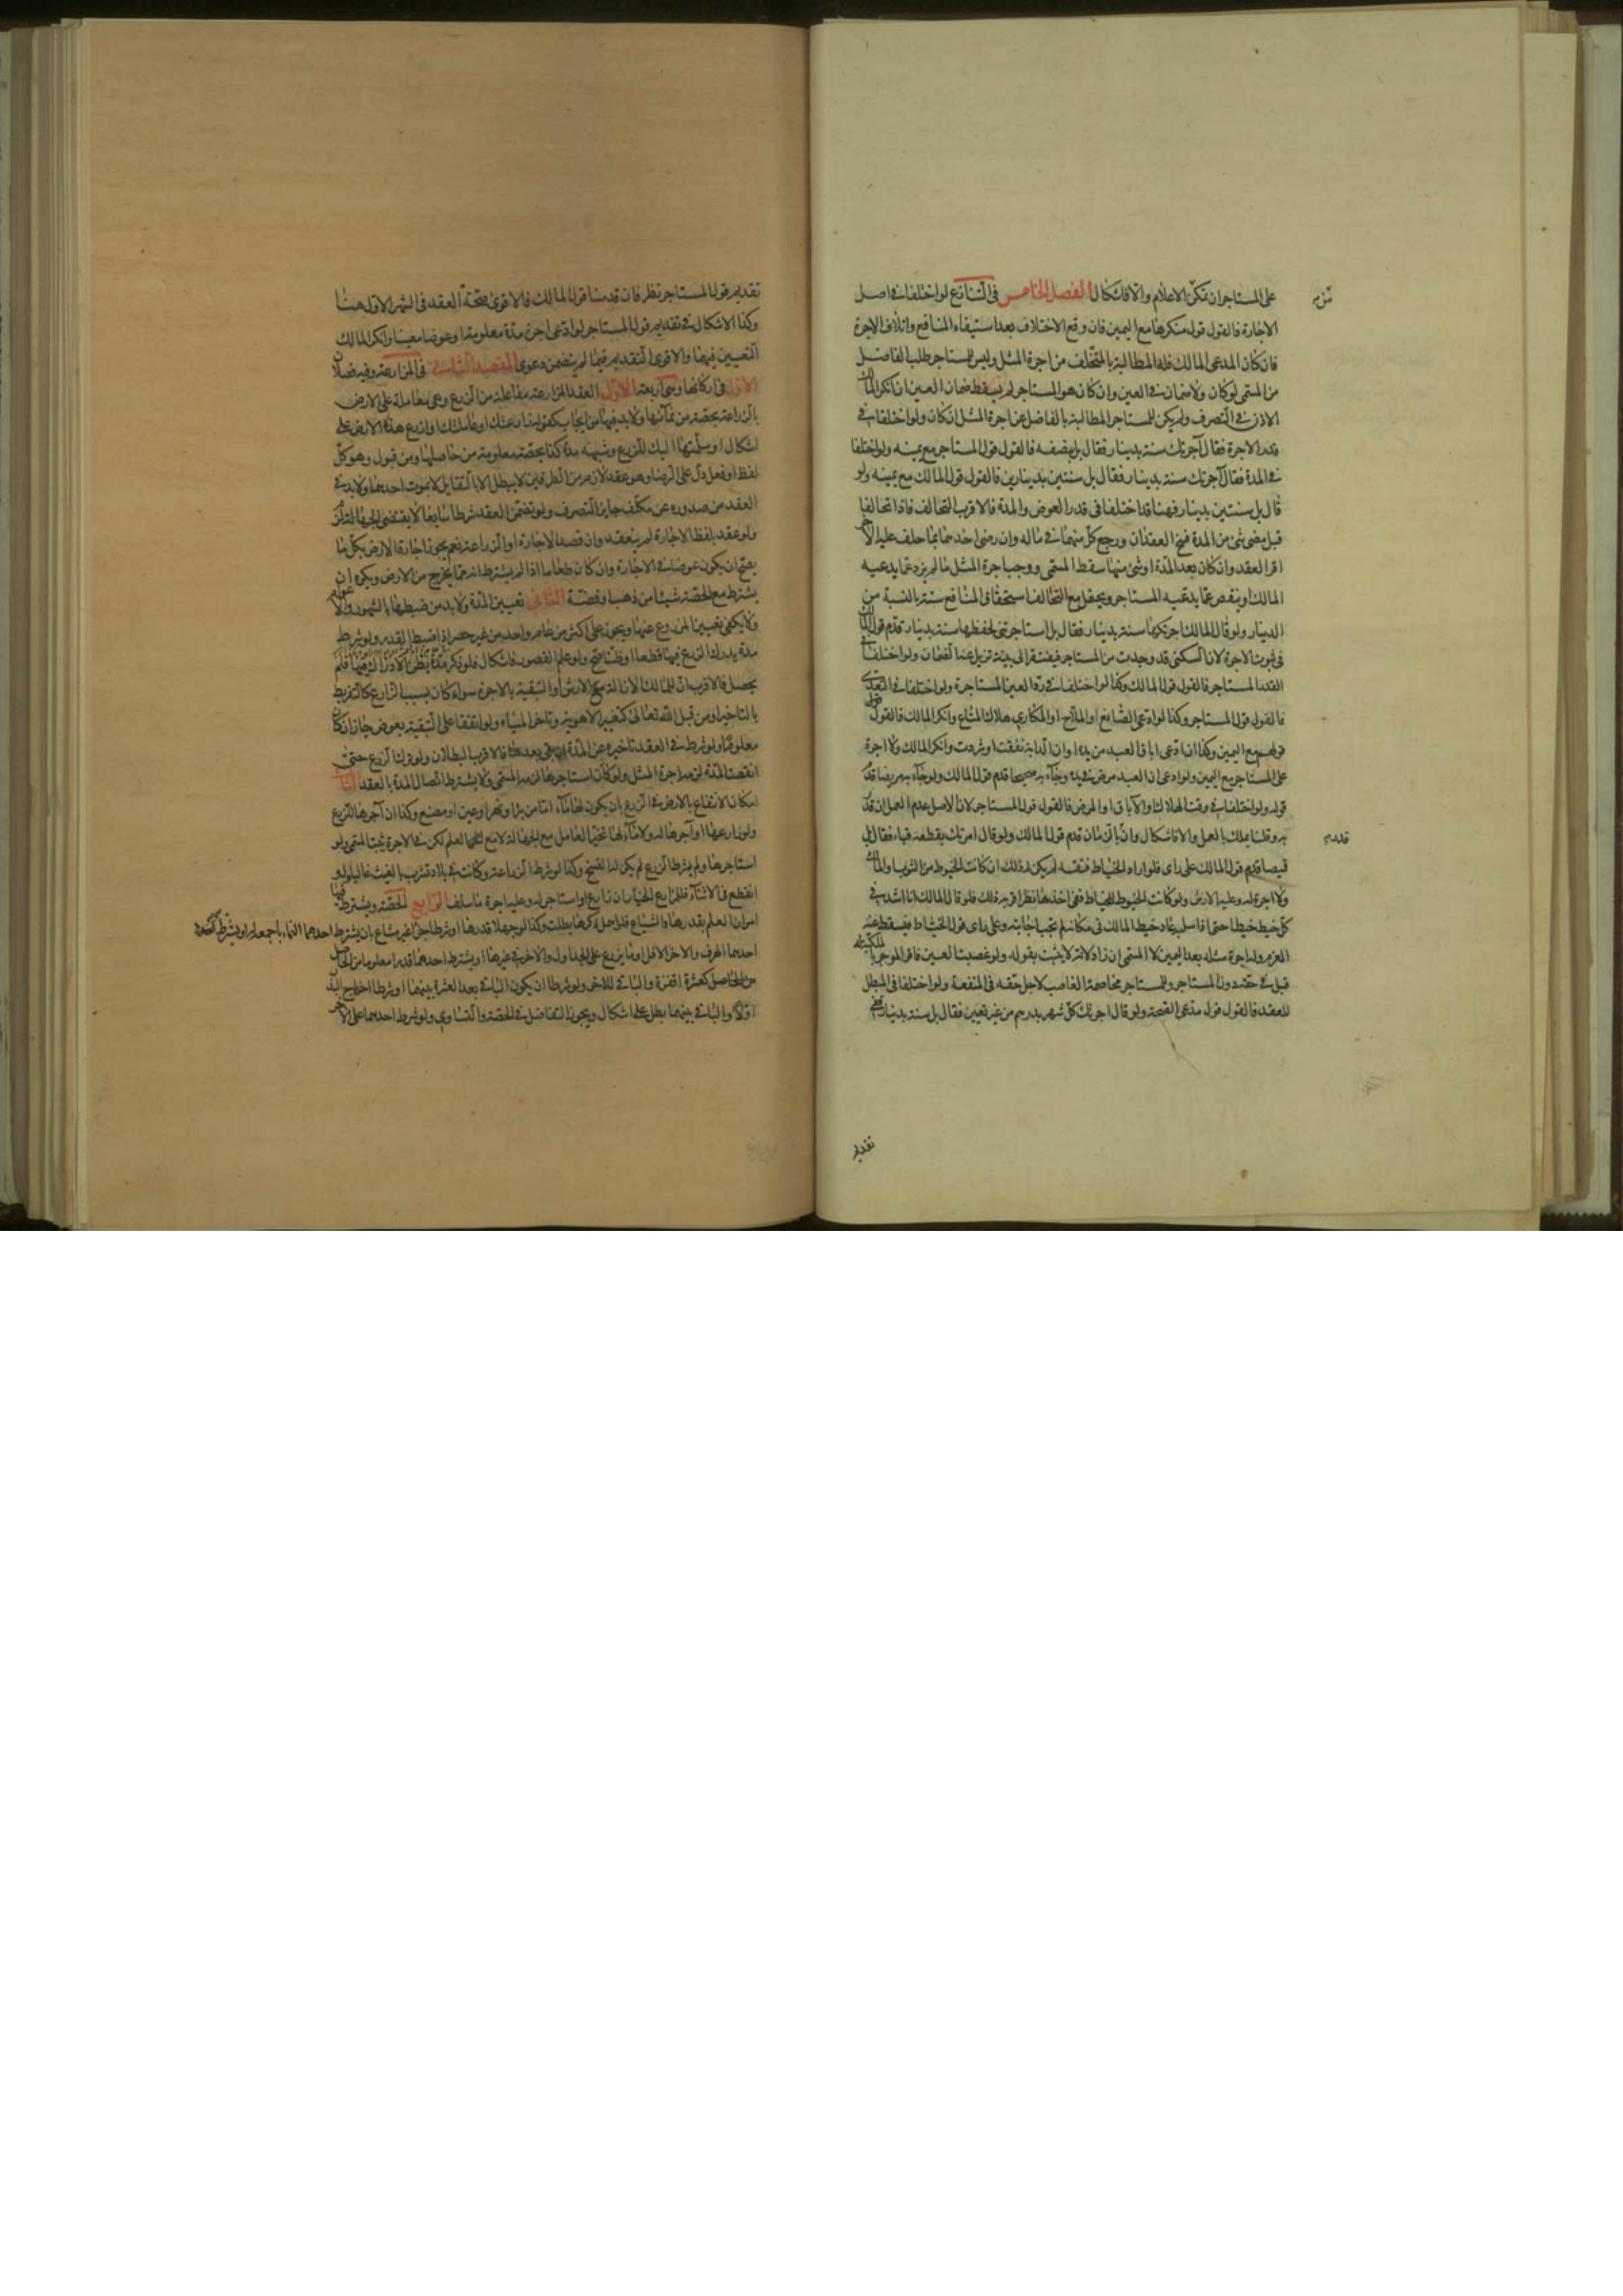 على المستاجر ان تمكن الاعلام والا فاشكال الفصل الخامس فى التنازع لو اختلفا فى اصل
الاجارة فالقول قول منكرها مع اليمين فان وقع الاختلاف بعد استيفاء المنافع واتلاف الاجرة
فان كان المدعى المالك فله المطالبة بالمتخلف من اجرة المثل وليس للمستاجر طلب الفاضل
من المسمى لو كان ولا ضمان فى العين وان كان هو المستاجر لم يسقط ضمان العين ان انكر المالك
الاذن فى التصرف ولم يكن للمستاجر المطالبة بالفاضل عن اجرة المثل ان كان ولو اختلفا فى
قدر الاجرة فقال آجرتك سنة بدينار فقال بل بنصفه فالقول قول المستاجر مع يمينه ولو اختلفا
فى المدة فقال آجرتك سنة بدينار فقال بل سنتين بدينارين فالقول قول المالك مع يمينه ولو
قال بل سنتين بدينار فهنا قد اختلفا فى قدر العوض والمدة فالاقرب التحالف فاذا تحالفا
قبل مضى شئ من المدة فسخ العقدان ورجع كل منهما فى ماله وان رضى احدهما بما حلف عليه الآخر
اقر العقد وان كان بعد المدة او شئ منها سقط المسمى ووجب اجرة المثل ما لم يزد عما يدعيه
المالك او ينقص عما يدعيه المستاجر ويحتمل مع التحالف استحقاق المنافع سنة بالنسبة من
الدينار ولو قال المالك اجرتكها سنة بدينار فقال بل استاجرتنى لحفظها سنة بدينار قدم قول المالك
فى ثبوت الاجرة لان السكنى قد وجدت من المستاجر فيفتقر الى بينة تزيل عنه الضمان ولو اختلفا فى
القدر المستاجر فالقول قول المالك وكذا لو اختلفا فى رد العين المستاجرة ولو اختلفا فى التعدى
فالقول قول المستاجر وكذا لو ادعى الصانع او الملاح او المكارى هلاك المتاع وانكر المالك فالقول قول
قولهم مع اليمين وكذا ان ادعى اباق العبد من يده او ان الدابة نفقت او شردت وانكر المالك ولا اجرة
على المستاجر مع اليمين ولو ادعى ان العبد مرض فى يده وجاء به صحيحا قدم قول المالك ولو جاء به مريضا قدم
قوله ولو اختلفا فى وقت الهلاك او الآباق او المرض فالقول قول المستاجر لان الاصل عدم العمل ان قدر
به وقلنا يملك بالعمل والا فاشكال وان بالزمان قدم قول المالك ولو قال امرتك بقطعه قباء فقال بل
قميصا قدم قول المالك على راى فلو اراد الخياط فتقه لم يكن له ذلك ان كانت الخيوط من الثوب او المالك
ولا اجرة له وعليه الارش ولو كانت الخيوط للخياط ففى اخذها نظر اقربه ذلك فلو قال المالك انا اشد فى
كل خيط خيطا حتى اذا سلبه عاد خيط المالك فى مكانه لم تجب اجابته وعلى راى قول الخياط فيسقط عنه
الغرم وله اجرة مثله بعد اليمين لا المسمى ان زاد لانه لا يثبت بقوله ولو غصبت العين فاقر الموجر بالملكية له
قبل فى حقه دون المستاجر وللمستاجر مخاصمة الغاصب لاجل حقه فى المنفعة ولو اختلفا فى المبطل
للعقد فالقول قول مدعى الصحة ولو قال اجرتك كل شهر بدرهم من غير تعيين فقال بل سنة بدينار ففى
تقديم
تقديم قول المستاجر نظر فان قدمنا قول المالك فالاقوى صحة العقد فى الشهر الاول هنا
وكذا الاشكال فى تقديم قول المستاجر لو ادعى اجرة مدة معلومة او عوضا معينا وانكر المالك
التعيين فيهما والاقوى التقديم فيما لم يتضمن دعوى المقصد الثانى فى المزارعة وفيه فصلان
الاول فى اركانها وهى اربعة الاول العقد المزارعة مفاعلة من الزرع وهى معاملة على الارض
بالزراعة بحصة من نمائها ولا بد فيها من ايجاب كقوله زارعتك او عاملتك او ازرع هذه الارض على
اشكال او سلمتها اليك للزرع وشبهه مدة كذا بحصة معلومة من حاصلها ومن قبول وهو كل
لفظ او فعل دل على الرضا وهو عقد لازم من الطرفين لا يبطل الا بالتقايل لا بموت احدهما ولا بد فى
العقد من صدوره عن مكلف جايز التصرف ولو تضمن العقد شرطا سايغا لا يقتضى الجهالة لزم
ولو عقد بلفظ الاجارة لم ينعقد وان قصد الاجارة او الزراعة نعم يجوز اجارة الارض بكل ما
يصح ان يكون عوضا فى الاجارة وان كان طعاما اذا لم يشترط انه مما يخرج من الارض ويكره ان
يشترط مع الحصة شيئا من ذهب او فضة الثانى تعيين المدة ولا بد من ضبطها بالشهور والاعوام
ولا يكفى تعيين المزروع عنها ويجوز على اكثر من عام واحد من غير حصر اذا ضبط القدر ولو شرط
مدة يدرك الزرع فيها قطعا او ظنا صح ولو علم القصور فاشكال فلو ذكر مدة يظن الادراك فيها فلم
يحصل فالاقرب ان للمالك الازالة مع الارش او التبقية بالاجرة سواء كان بسبب الزارع كالتفريط
بالتاخير او من قبل الله تعالى كتغير الاهوية وتاخر المياه ولو اتفقا على التبقية بعوض جاز ان كان
معلوما ولو شرط فى العقد تاخيره عن المدة ان بقى بعدها فالاقرب البطلان ولو ترك الزرع حتى
انقضت المدة لزمه اجرة المثل ولو كان استاجرها لزمه المسمى ولا يشترط اتصال المدة بالعقد الثالث
امكان الانتفاع بالارض فى الزرع بان يكون لها ماء اما من بئر او نهر او عين او مصنع وكذا ان آجرها للزرع
ولو زارعها او آجرها له ولا ماء لها تخير العامل مع الجهالة لا مع العلم لكن فى الاجرة يثبت المسمى ولو
استاجرها ولم يشترط الزرع لم يكن له الفسخ وكذا لو شرط الزراعة وكانت فى بلاد تشرب بالغيث غالبا ولو
انقطع فى الاثناء فللمزارع الخيار ان زارع او استاجر له وعليه اجرة ما سلف الرابع الحصة ويشترط فيها
امران العلم بقدرها والشياع فلو اهمل ذكرها بطلت وكذا لو جهلا قدرها او شرطا جزءا غير مشاع بان يشترط احدهما النماء باجمعه له او يشترط
احدهما الهرف والآخر الافل او ما يزرع على الجداول والآخر فى غيرها او يشترط احدهما قدرا معلوما من الحاصل
من الحاصل كعشرة اقفزة والباقى للاخر ولو شرطا ان يكون الباقى بعد العشرة بينهما او شرطا اخراج البذر
اولا والباقى بينهما بطل على اشكال ويجوز التفاضل فى الحصة والتساوى ولو شرط احدهما على الآخر